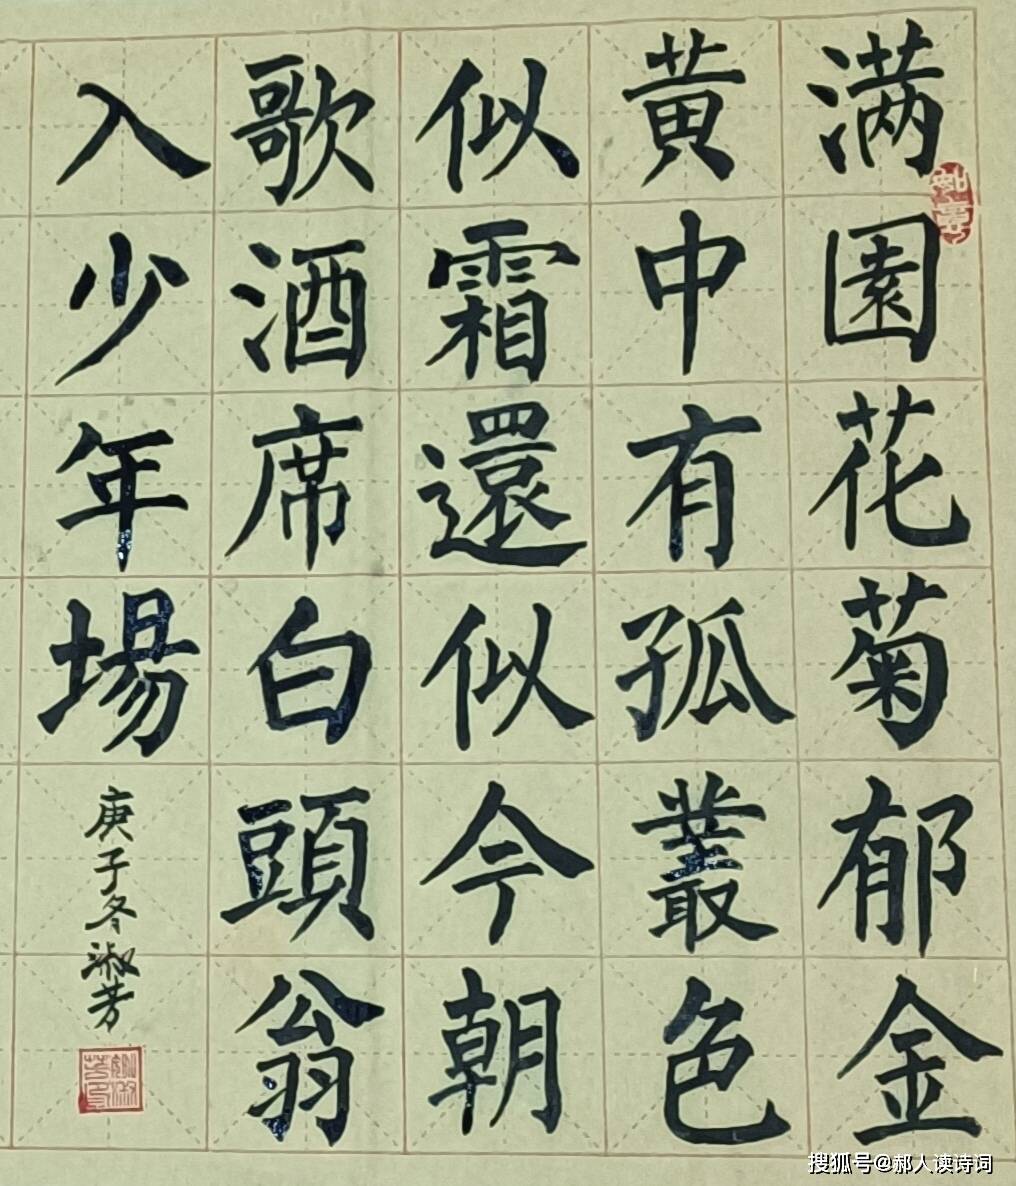 满園花菊郁金
黄中有孤叢色
似霜還似今朝
歌酒席白頭翁
入少年場
庚子冬淑芳
如意
搜狐号@郝人读诗词